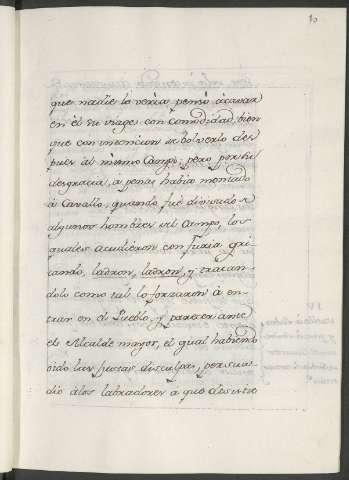 10
que nadie lo veria, pensó acavar
en él su viage con comodidad, bien
que con intencion de bolverlo des
pues al mismo Campo; pero por su
desgracia, á penas habia montado
á Cavallo, quando fue divisado de
algunos hombres del Campo, los
quales acudieron con furia gri-
tando, ladron, ladron, y tratan-
dolo como tal lo forzaron à en-
trar en el Pueblo, y parecer ante
el Alcalde mayor, el qual habiendo
oido las justas disculpas, persua-
dió á los labradores a que desistie